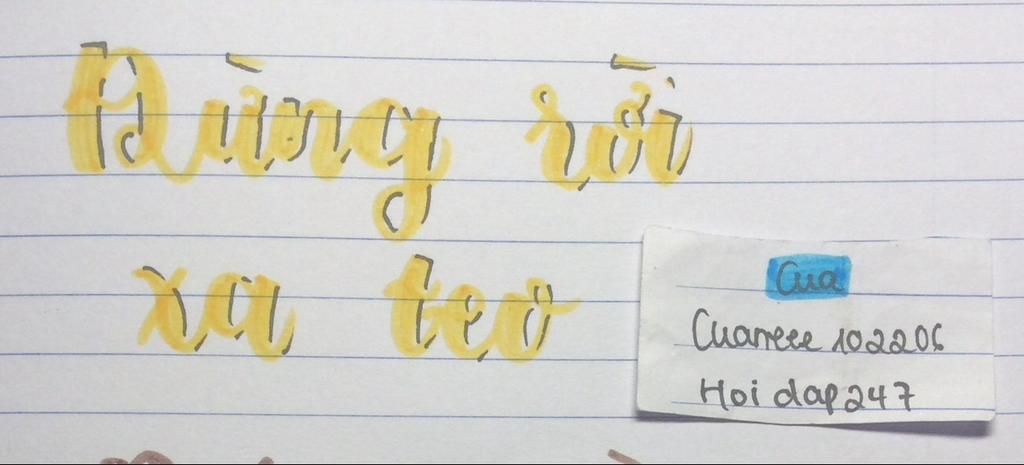 Đừng rời
xa teo
Cua
Cuarreee 102206
Hoi dap 247